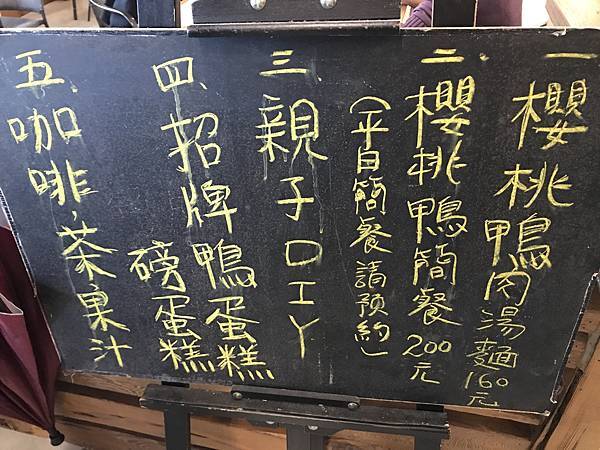 一、櫻桃鴨肉湯麵160元
二、櫻桃鴨簡餐200元
(平日簡餐請預約)
三、親子DIY
四、招牌鴨蛋糕
磅蛋糕
五、咖啡、茶、果汁